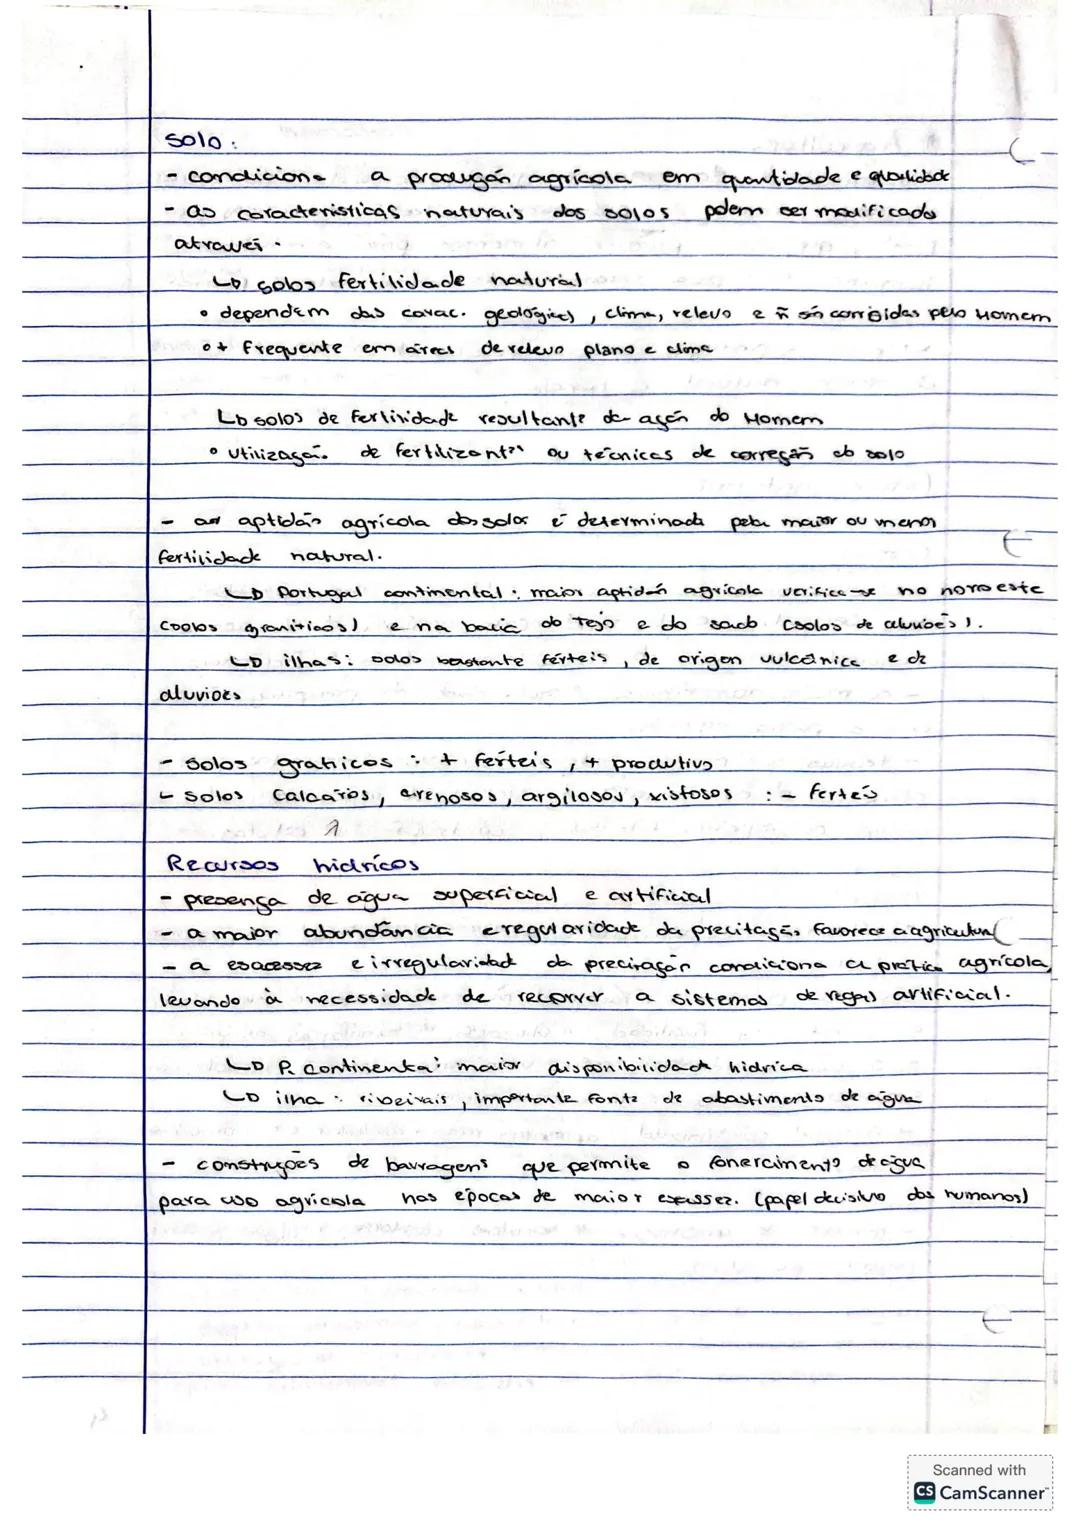 solo :
- condiciona a produção agrícola em quantidade e qualidade
- as características naturais dos solos podem ser modificada
através .
↳ solos fertilidade natural
• dependem das carac. geológicas , clima, relevo e ñ são corrigidas pelo Homem
• + frequente em áreas de relevo plano e clima
↳ solos de fertilidade resultante da ação do Homem
• utilização de fertilizantes ou técnicas de correção do solo
- a aptidão agrícola dos solos é determinada pela maior ou menor
fertilidade natural.
↳ Portugal continental : maior aptidão agrícola verifica-se no noroeste
(solos graníticos) e na bacia do Tejo e do sado (solos de aluviões).
↳ ilhas: solos bastante férteis , de origem vulcânica e de
aluvioes
- solos graticos : + férteis , + produtivo
- solos calcários, arenosos, argilosos, xistosos : - ferteis
Recursos hidrícos
- presença de água superficial e artificial
- a maior abundância e regularidade da precitação favorece a agricultura
- a esacessez e irregularidad da preciração condiciona a prática agrícola,
levando à necessidade de recorrer a sistemas de regas artificial.
↳ P. continental: maior disponibilidade hidrica
↳ ilha : ribeirais , importante fonte de abastimento de água
- construções de barragens que permite o fonercimento de água
para uso agrícola nas épocas de maior escassez. (papel decisivo dos humanos)
Scanned with
CS CamScanner